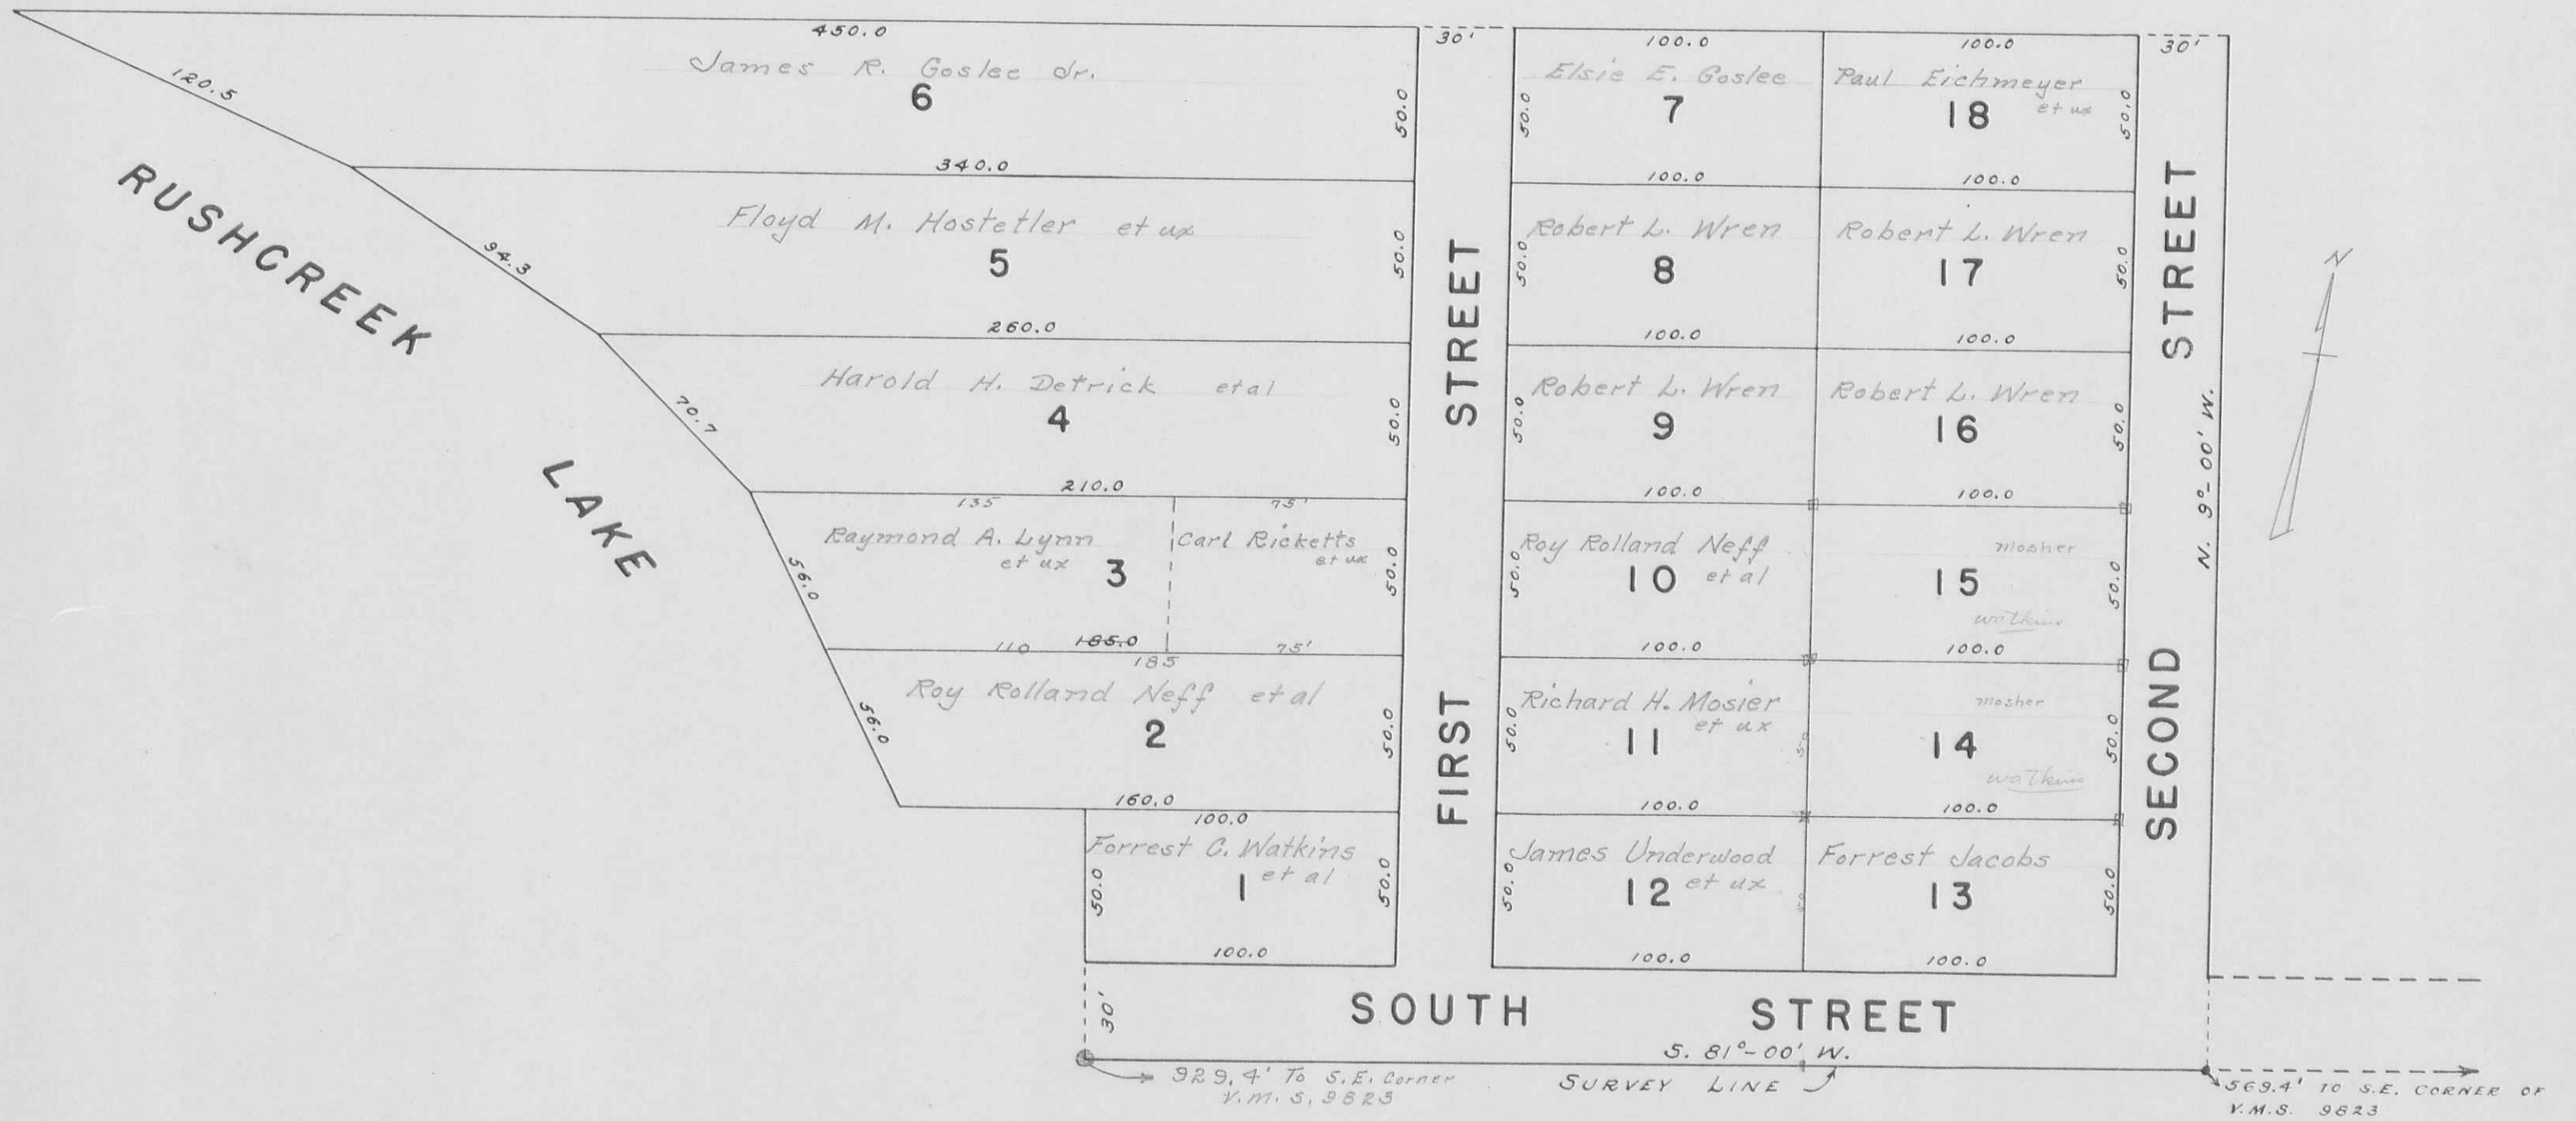 450.0
James R. Goslee Jr.
6
120.5
50.0
340.0
Floyd M. Hostetler et ux
5
94.3
50.0
260.0
Harold H. Detrick etal
4
70.7
50.0
210.0
135
75'
Raymond A. Lynn
et ux
3
Carl Ricketts
et ux
56.0
50.0
110
185.0
75'
185
Roy Rolland Neff et al
2
56.0
50.0
160.0
100.0
Forrest C. Watkins
et al
1
50.0
50.0
100.0
30'
RUSHCREEK
LAKE
30'
FIRST STREET
100.0
Elsie E. Goslee
7
50.0
100.0
Robert L. Wren
8
50.0
100.0
Robert L. Wren
9
50.0
100.0
Roy Rolland Neff
et al
10
50.0
100.0
Richard H. Mosier
et ux
11
50.0
50
100.0
James Underwood
et ux
12
50.0
50
100.0
100.0
Paul Eichmeyer
et ux
18
50.0
100.0
Robert L. Wren
17
50.0
100.0
Robert L. Wren
16
50.0
100.0
mosher
15
watkins
50.0
100.0
mosher
14
watkins
50.0
100.0
Forrest Jacobs
13
50.0
100.0
30'
SECOND STREET
N. 9°-00' W.
N
SOUTH STREET
S. 81°-00' W.
929.4' To S.E. Corner
V.M.S. 9823
SURVEY LINE
569.4' TO S.E. CORNER OF
V.M.S. 9823